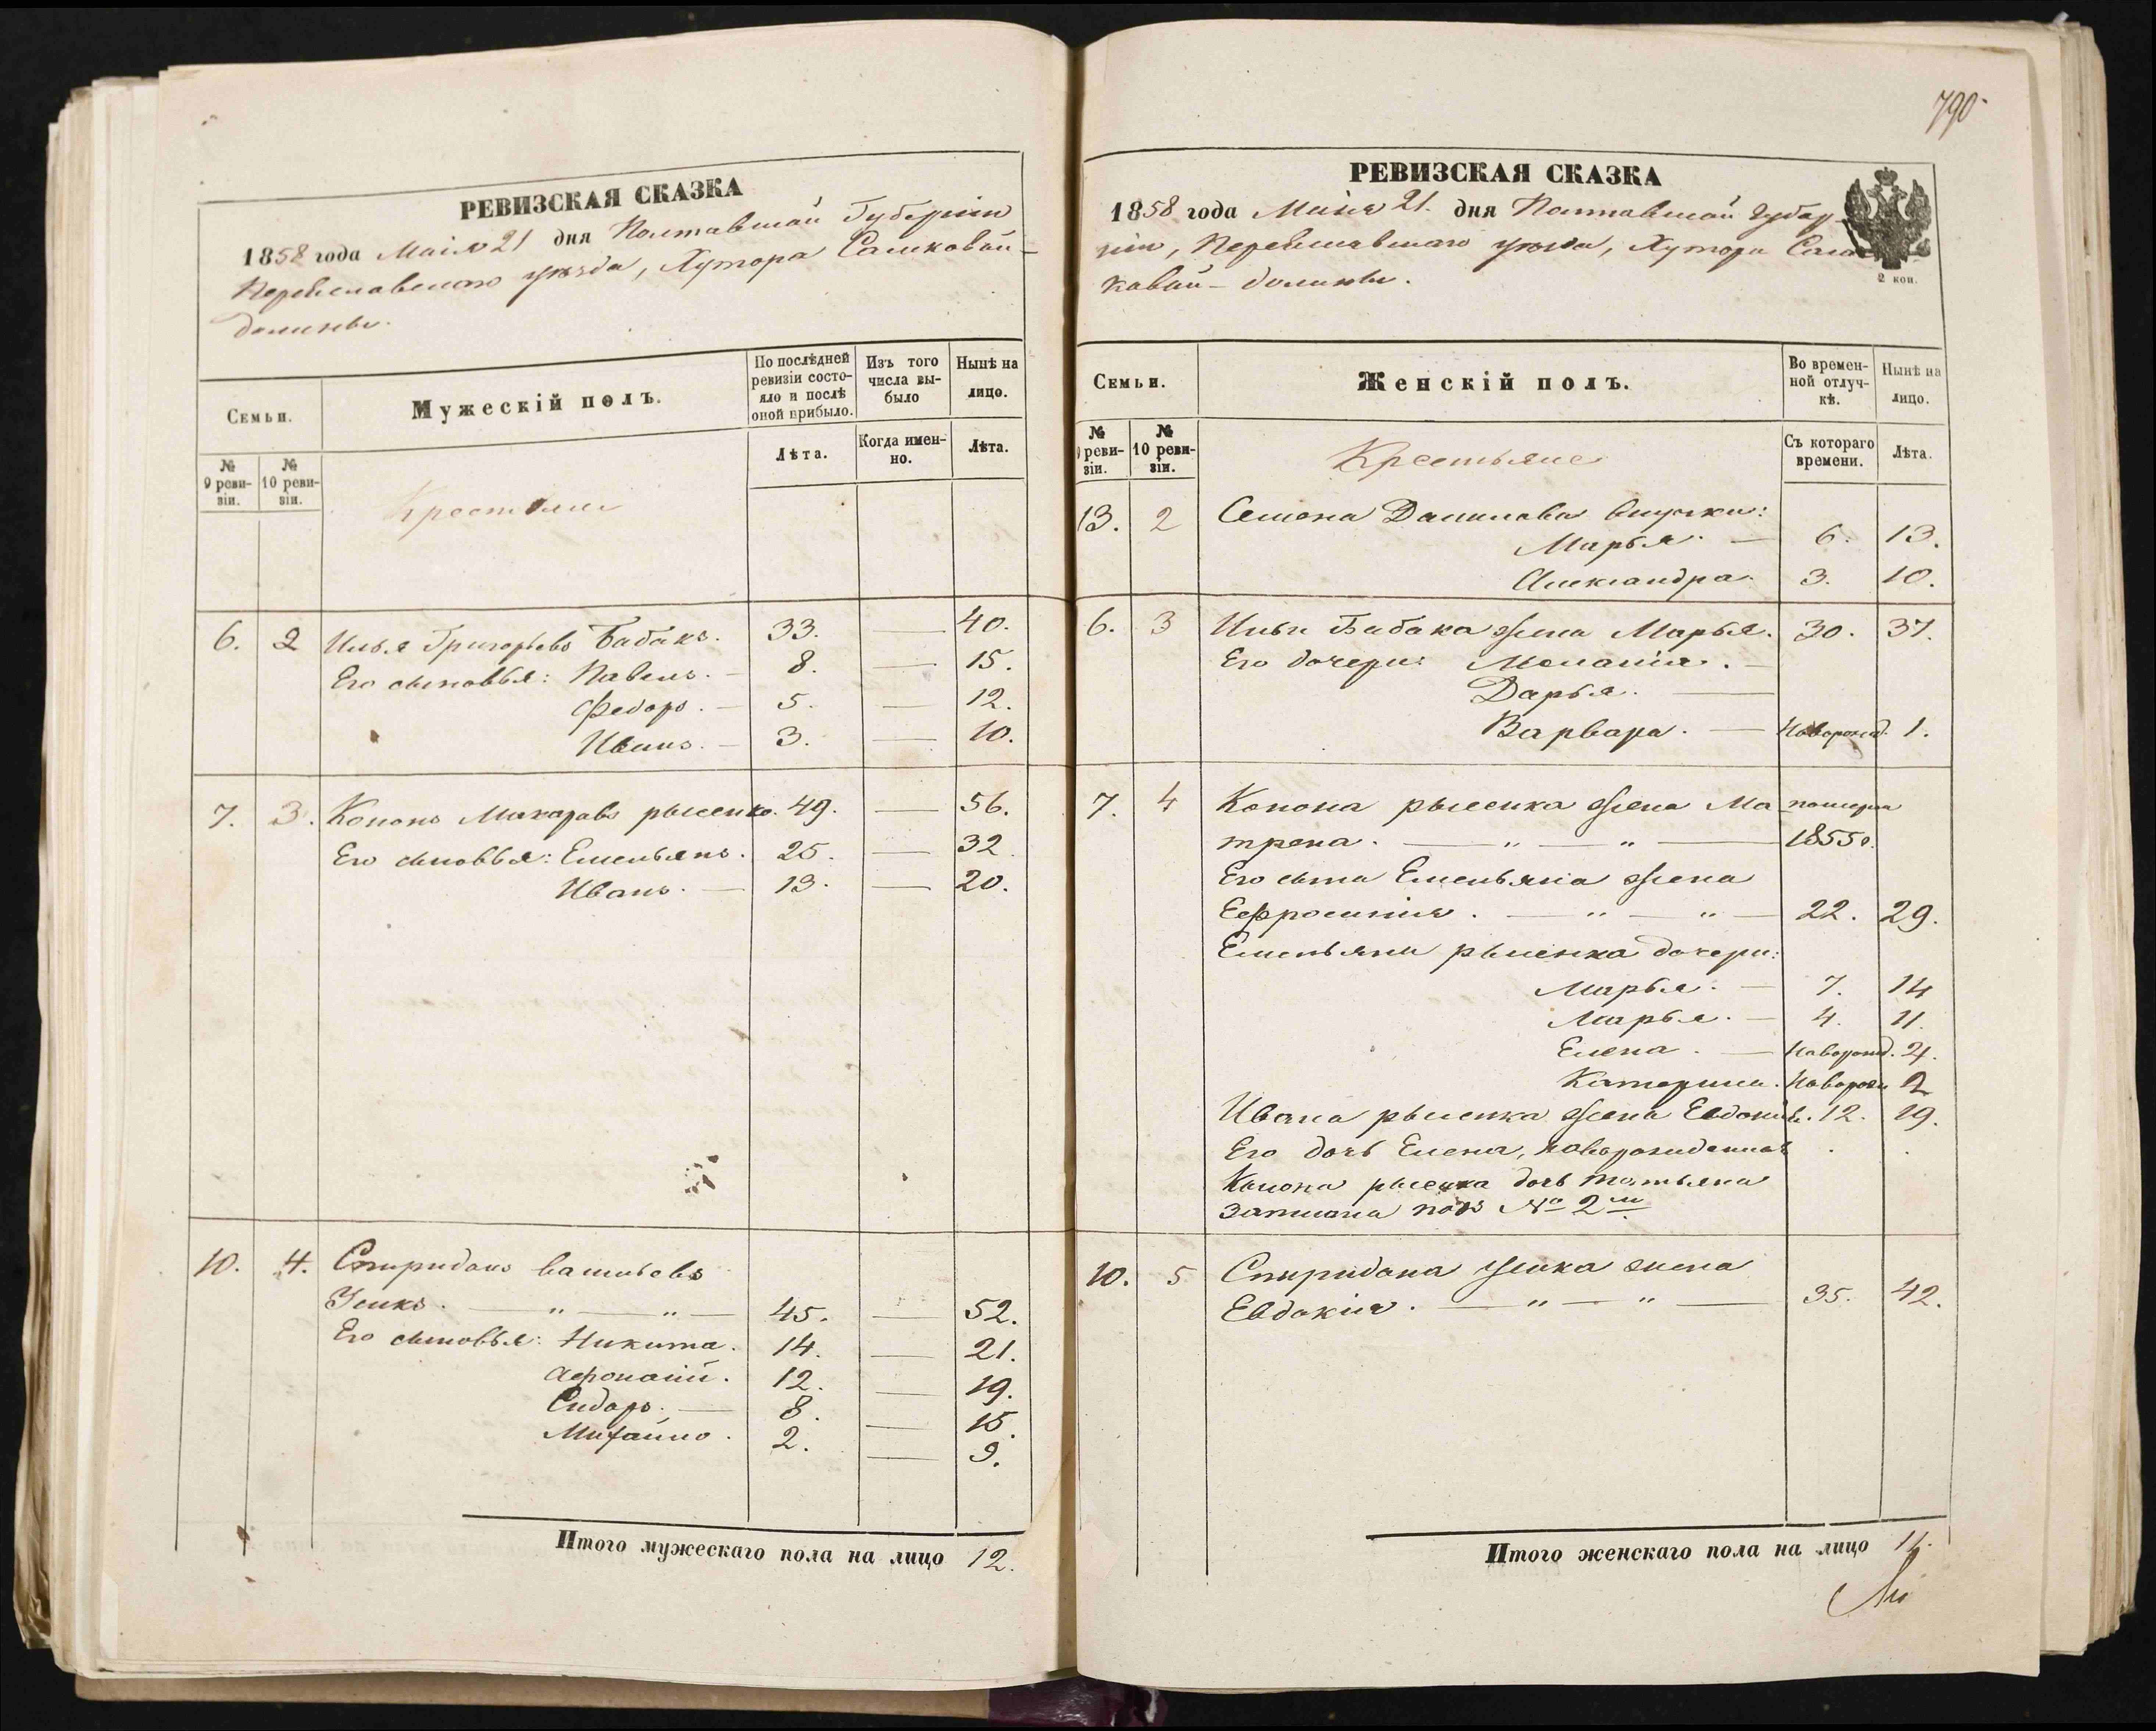 790
РЕВИЗСКАЯ СКАЗКА
1858 года Маія 21 дня Полтавской Губерніи
Переяславскаго уѣзда, Хутора Самковой-
долины.
Семьи.
Мужескій полъ.
По послѣдней ревизіи состояло и послѣ оной прибыло.
Изъ того числа выбыло
Нынѣ на лицо.
№ 9 ревизіи.
№ 10 ревизіи.
Лѣта.
Когда именно.
Лѣта.
Крестьяне
6. 2 Илья Григорьевъ Бабакъ. 33. — 40.
Его сыновья: Павелъ. — 8. — 15.
Федоръ. — 5. — 12.
Иванъ. — 3. — 10.
7. 3. Кононъ Макаровъ рысенко. 49. — 56.
Его сыновья: Емельянъ. 25. — 32
Иванъ. — 13. — 20.
10. 4. Спиридонъ васильевъ
Усикъ. — „ — „ — 45. — 52.
Его сыновья: Никита. 14. — 21.
Афонасій. 12. — 19.
Сидоръ. — 8. — 15.
Михайло. 2. — 9.
Итого мужескаго пола на лицо 12.
РЕВИЗСКАЯ СКАЗКА
1858 года Маія 21. дня Полтавской Губер-
ніи, Переяславскаго уѣзда, Хутора Сам-
ковой-долины.
2 коп.
Семьи.
Женскій полъ.
Во временной отлучкѣ.
Нынѣ на лицо.
№ 9 ревизіи.
№ 10 ревизіи.
Съ котораго времени.
Лѣта.
Крестьяне
13. 2 Семена Данилова внучки:
Марья. — 6. 13.
Александра. 3. 10.
6. 3 Ильи Бабака жена Марья. 30. 37.
Его дочери: Меланія. —
Дарья. —
Варвара. — Новорожд. 1.
7. 4 Конона рысенка жена Ма- померла
трена. — „ — „ — 1855 г.
Его сына Емельяна жена
Ефросинія. — „ — „ — 22. 29.
Емельяна рысенка дочери:
Марья. — 7. 14
Марья. — 4. 11.
Елена. — Новорожд. 4.
Катерина. Новорож 2
Ивана рысенка жена Евдокія. 12. 19.
Его дочь Елена, новорожденная . .
Конона рысенка дочь Татьяна
записана подъ № 2м.
10. 5 Спиридона Усика жена
Евдокія. — „ — „ — 35. 42.
Итого женскаго пола на лицо 11.